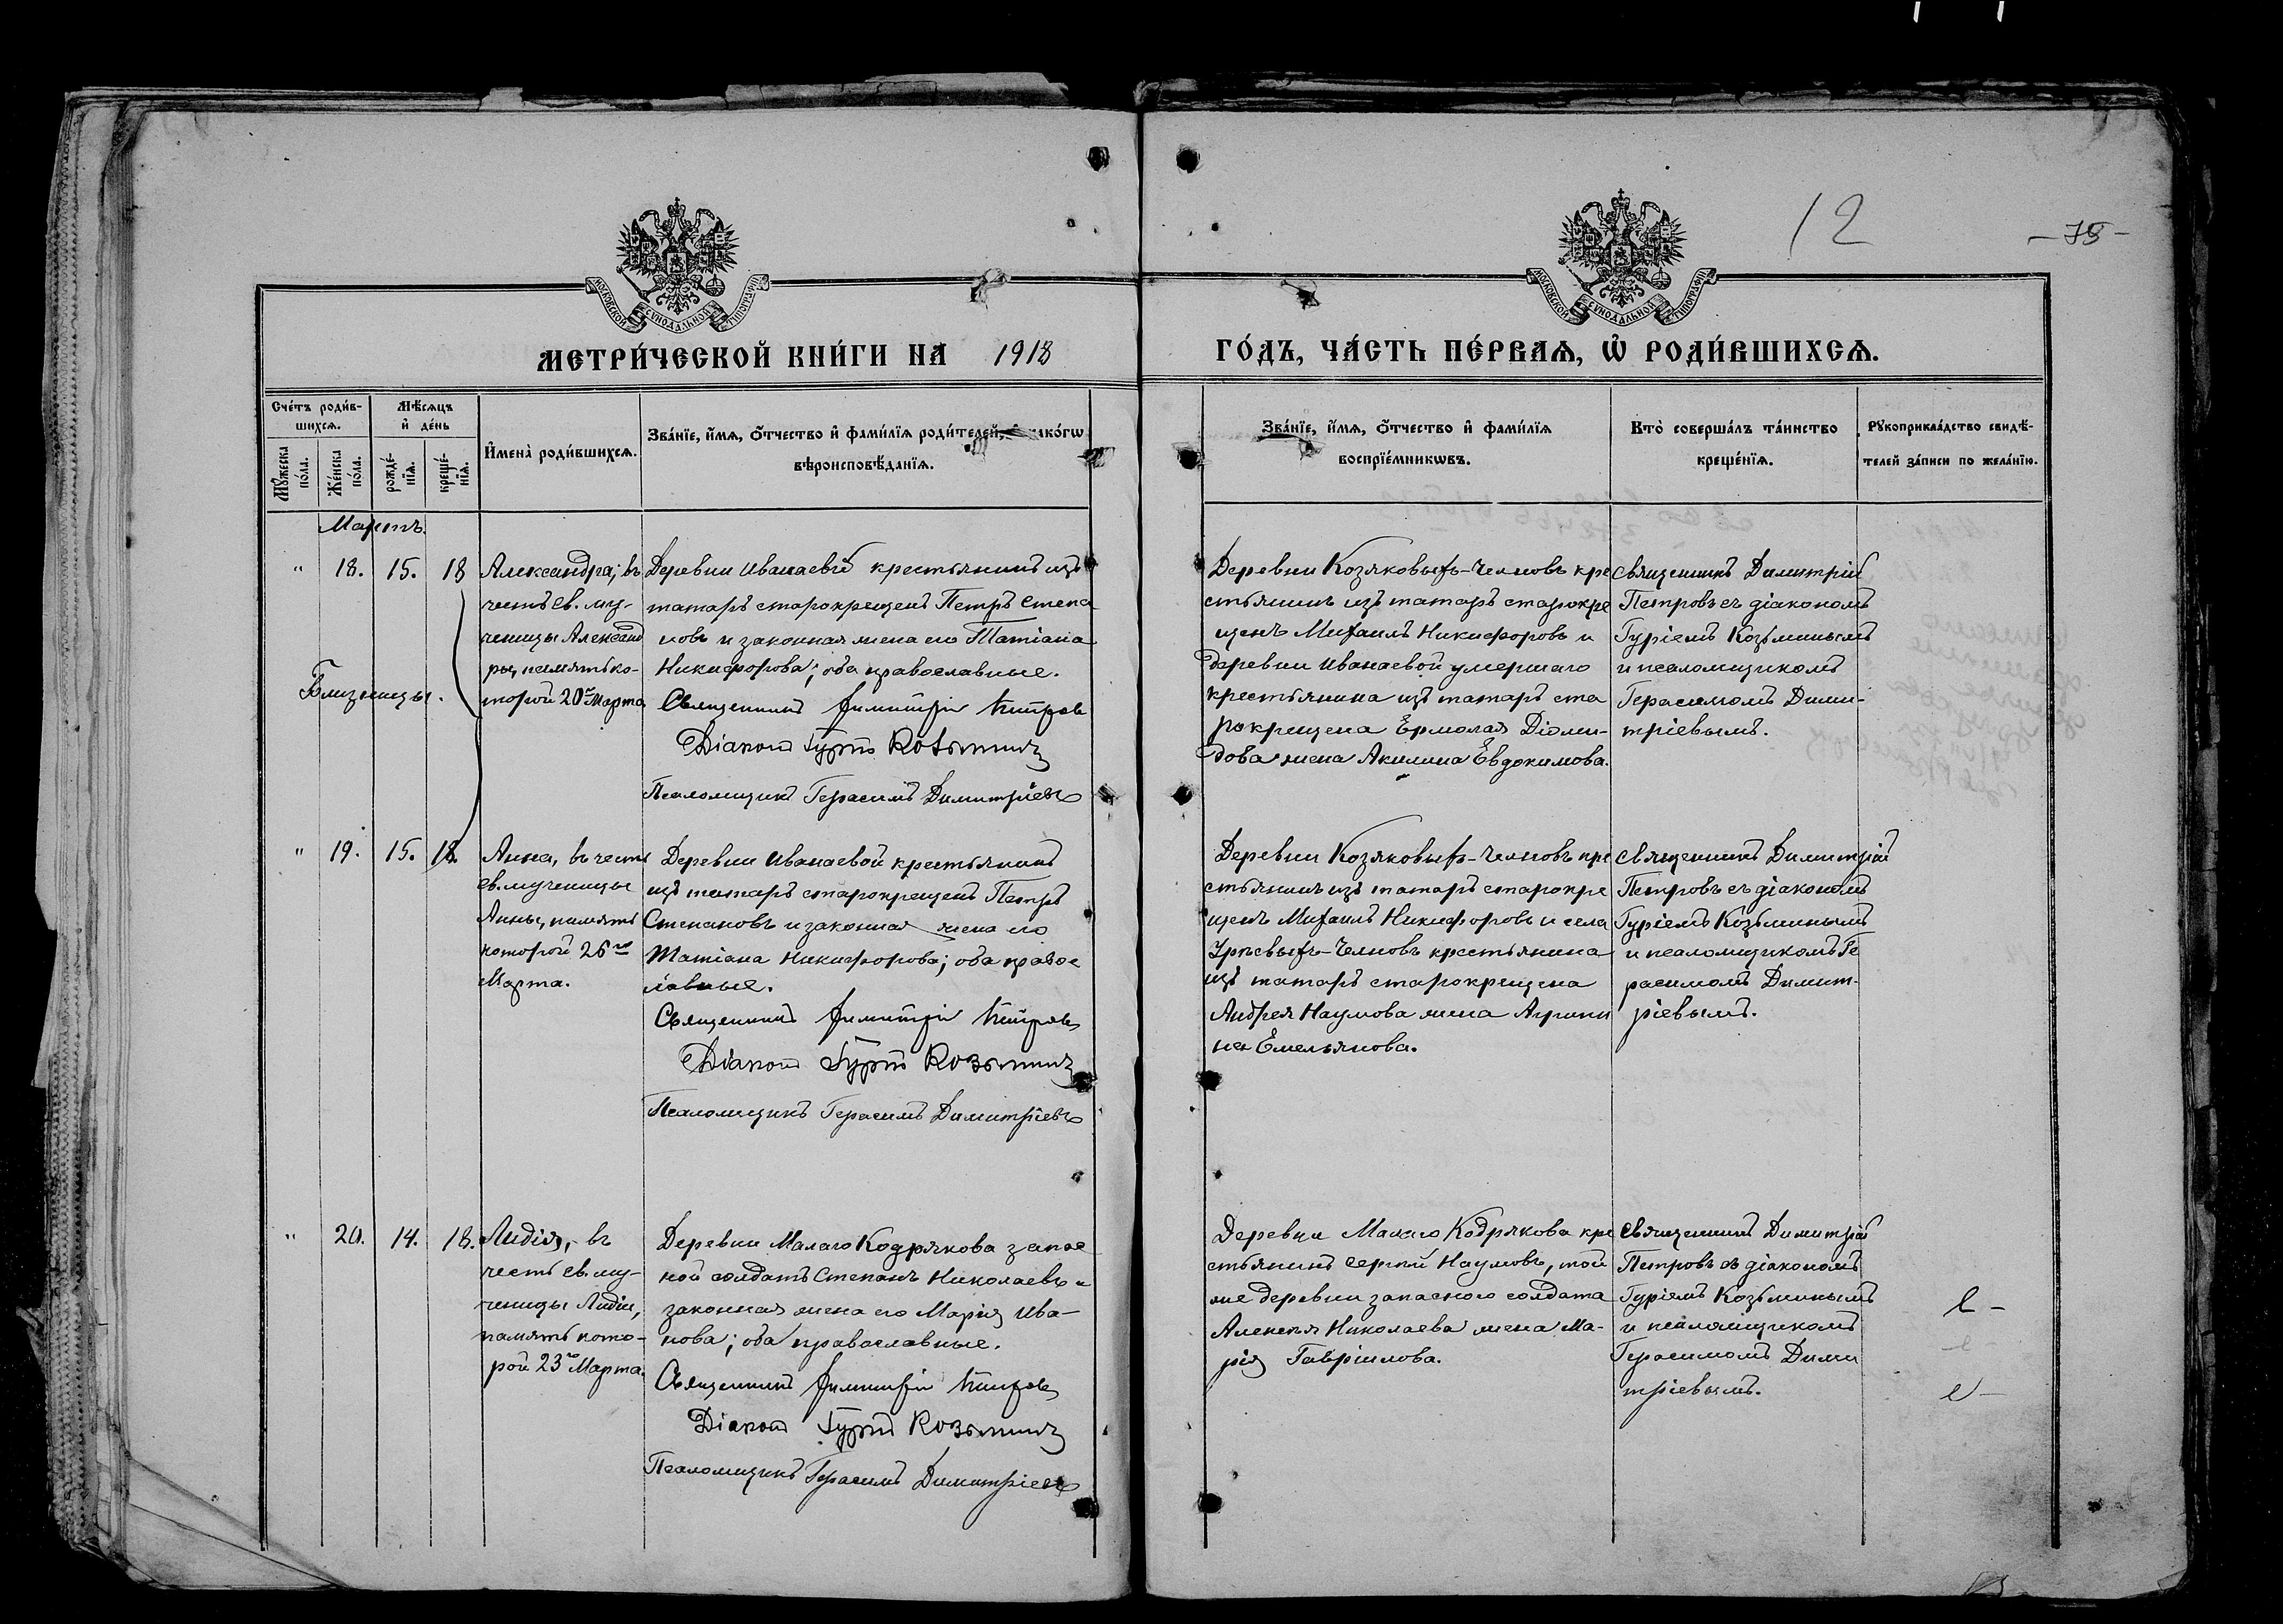 12
МОСКОВСКОЙ СѴНОДАЛЬНОЙ ТИПОГРАФІИ
МОСКОВСКОЙ СѴНОДАЛЬНОЙ ТИПОГРАФІИ
МЕТРИ́ЧЕСКОЙ КНИ́ГИ НА 1918
ГО́ДЪ, ЧА́СТЬ ПЕ́РВАѦ, Ѡ РОДИ́ВШИХСѦ.
Сче́тъ роди́в-
шихсѧ.
Мꙋ́жеска
по́ла.
Же́нска
по́ла.
Мѣ́сѧцъ
и҆ де́нь
рожде́-
нїѧ.
креще́-
нїѧ.
И҆мена̀ роди́вшихсѧ.
Зва́нїе, и҆́мѧ, ѻ҆́тчество и҆ фами́лїѧ роди́телей, и҆ како́гѡ
вѣроисповѣ́данїѧ.
Зва́нїе, и҆́мѧ, ѻ҆́тчество и҆ фами́лїѧ
воспрїе́мникѡвъ.
Кто̀ соверша́лъ та́инство
креще́нїѧ.
Рꙋкоприкла́дство свидѣ́-
телей за́писи по жела́нїю.
Мартъ.
" 18. 15. 18
Александра; въ
честь св. му-
ченицы Александ
ры, память ко-
торой 20го Марта
Близницы.
Деревни Иванаевой крестьянинъ изъ
татаръ старокрещенъ Петръ Степа
новъ и законная жена его Татіана
Никифорова; оба православные.
Священникъ Димитрій Петровъ
Діаконъ Гурій Козьминъ
Псаломщикъ Герасимъ Димитріевъ
Деревни Козяковыхъ-Челновъ кре
стьянинъ изъ татаръ старокре
щенъ Михаилъ Никифоровъ и
деревни Иванаевой умершаго
крестьянина изъ татаръ ста
рокрещена Ермолая Діоми-
дова жена Акилина Евдокимова.
Священникъ Димитрій
Петровъ съ діакономъ
Гуріемъ Козьминымъ
и псаломщикомъ
Герасимомъ Дими-
тріевымъ.
" 19. 15. 18.
Анна, въ честь
св. мученицы
Анны, память
которой 26го
Марта.
Деревни Иванаевой крестьянинъ
изъ татаръ старокрещенъ Петръ
Степановъ и законная жена его
Татіана Никифорова; оба правос
лавные.
Священникъ Димитрій Петровъ
Діаконъ Гурій Козьминъ
Псаломщикъ Герасимъ Димитріевъ
Деревни Козяковыхъ-Челновъ кре
стьянинъ изъ татаръ старокре
щенъ Михаилъ Никифоровъ и села
Урѣевыхъ-Челновъ крестьянина
изъ татаръ старокрещена
Андрея Наумова жена Агрипи
на Емельянова.
Священникъ Димитрій
Петровъ съ діакономъ
Гуріемъ Козьминымъ
и псаломщикомъ Ге
расимомъ Димит-
ріевымъ.
" 20. 14. 18.
Лидія, въ
честь св. му-
ченицы Лидіи,
память кото-
рой 23го Марта.
Деревни Малаго Кодрякова запас
ной солдатъ Степанъ Николаевъ и
законная жена его Марія Ива-
нова; оба православные.
Священникъ Димитрій Петровъ
Діаконъ Гурій Козьминъ
Псаломщикъ Герасимъ Димитріевъ
Деревни Малаго Кодрякова кре
стьянинъ Сергій Наумовъ, той
же деревни запаснаго солдата
Алексѣя Николаева жена Ма-
рія Гавріилова.
Священникъ Димитрій
Петровъ съ діакономъ
Гуріемъ Козьминымъ
и псаломщикомъ
Герасимомъ Дими
тріевымъ.